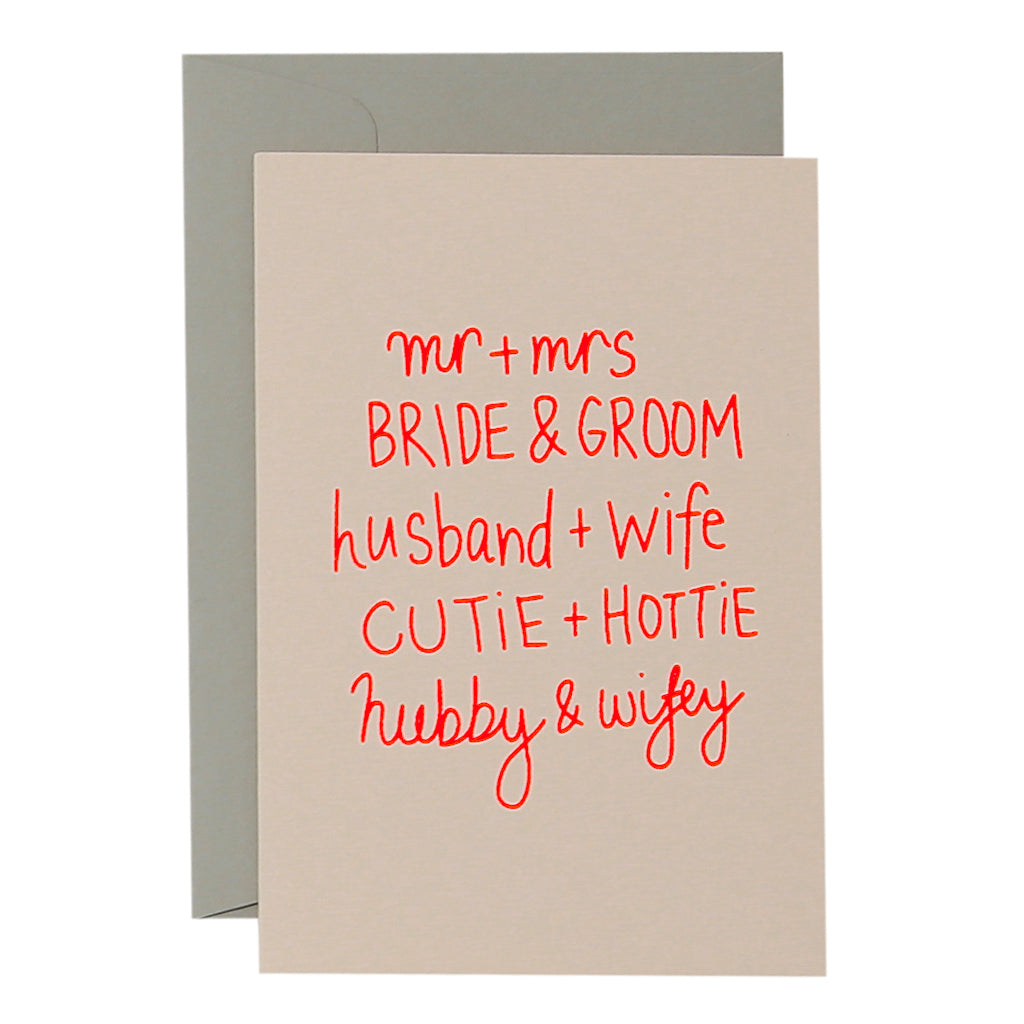 mr + mrs
BRIDE & GROOM
husband + wife
CUTiE + HOTTiE
hubby & wifey